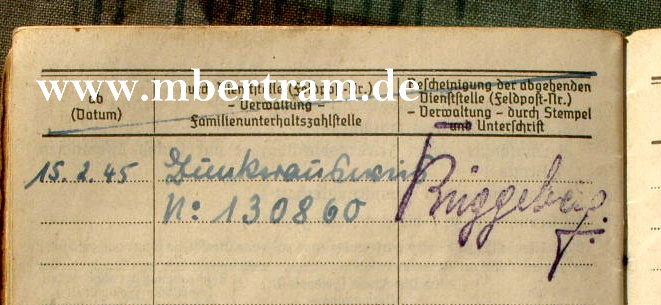 www.mbertram.de
ab
(Datum)
durch Dienststelle (Feldpost-Nr.)
– Verwaltung –
Familienunterhaltszahlstelle
Bescheinigung der abgehenden
Dienststelle (Feldpost-Nr.)
– Verwaltung – durch Stempel
und Unterschrift
15. 2. 45
N: 130860